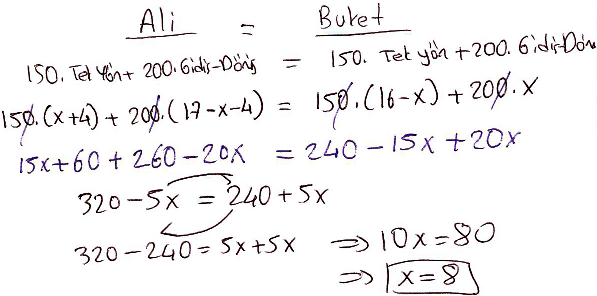 Ali = Buket
150. Tek Yön + 200. Gidiş-Dönüş = 150. Tek yön + 200. Gidiş-Dön
150.(x+4) + 200.(17-x-4) = 150.(16-x) + 200.x
15x+60 + 260-20x = 240-15x+20x
320-5x = 240+5x
320-240 = 5x+5x ⇒ 10x=80
⇒ x=8